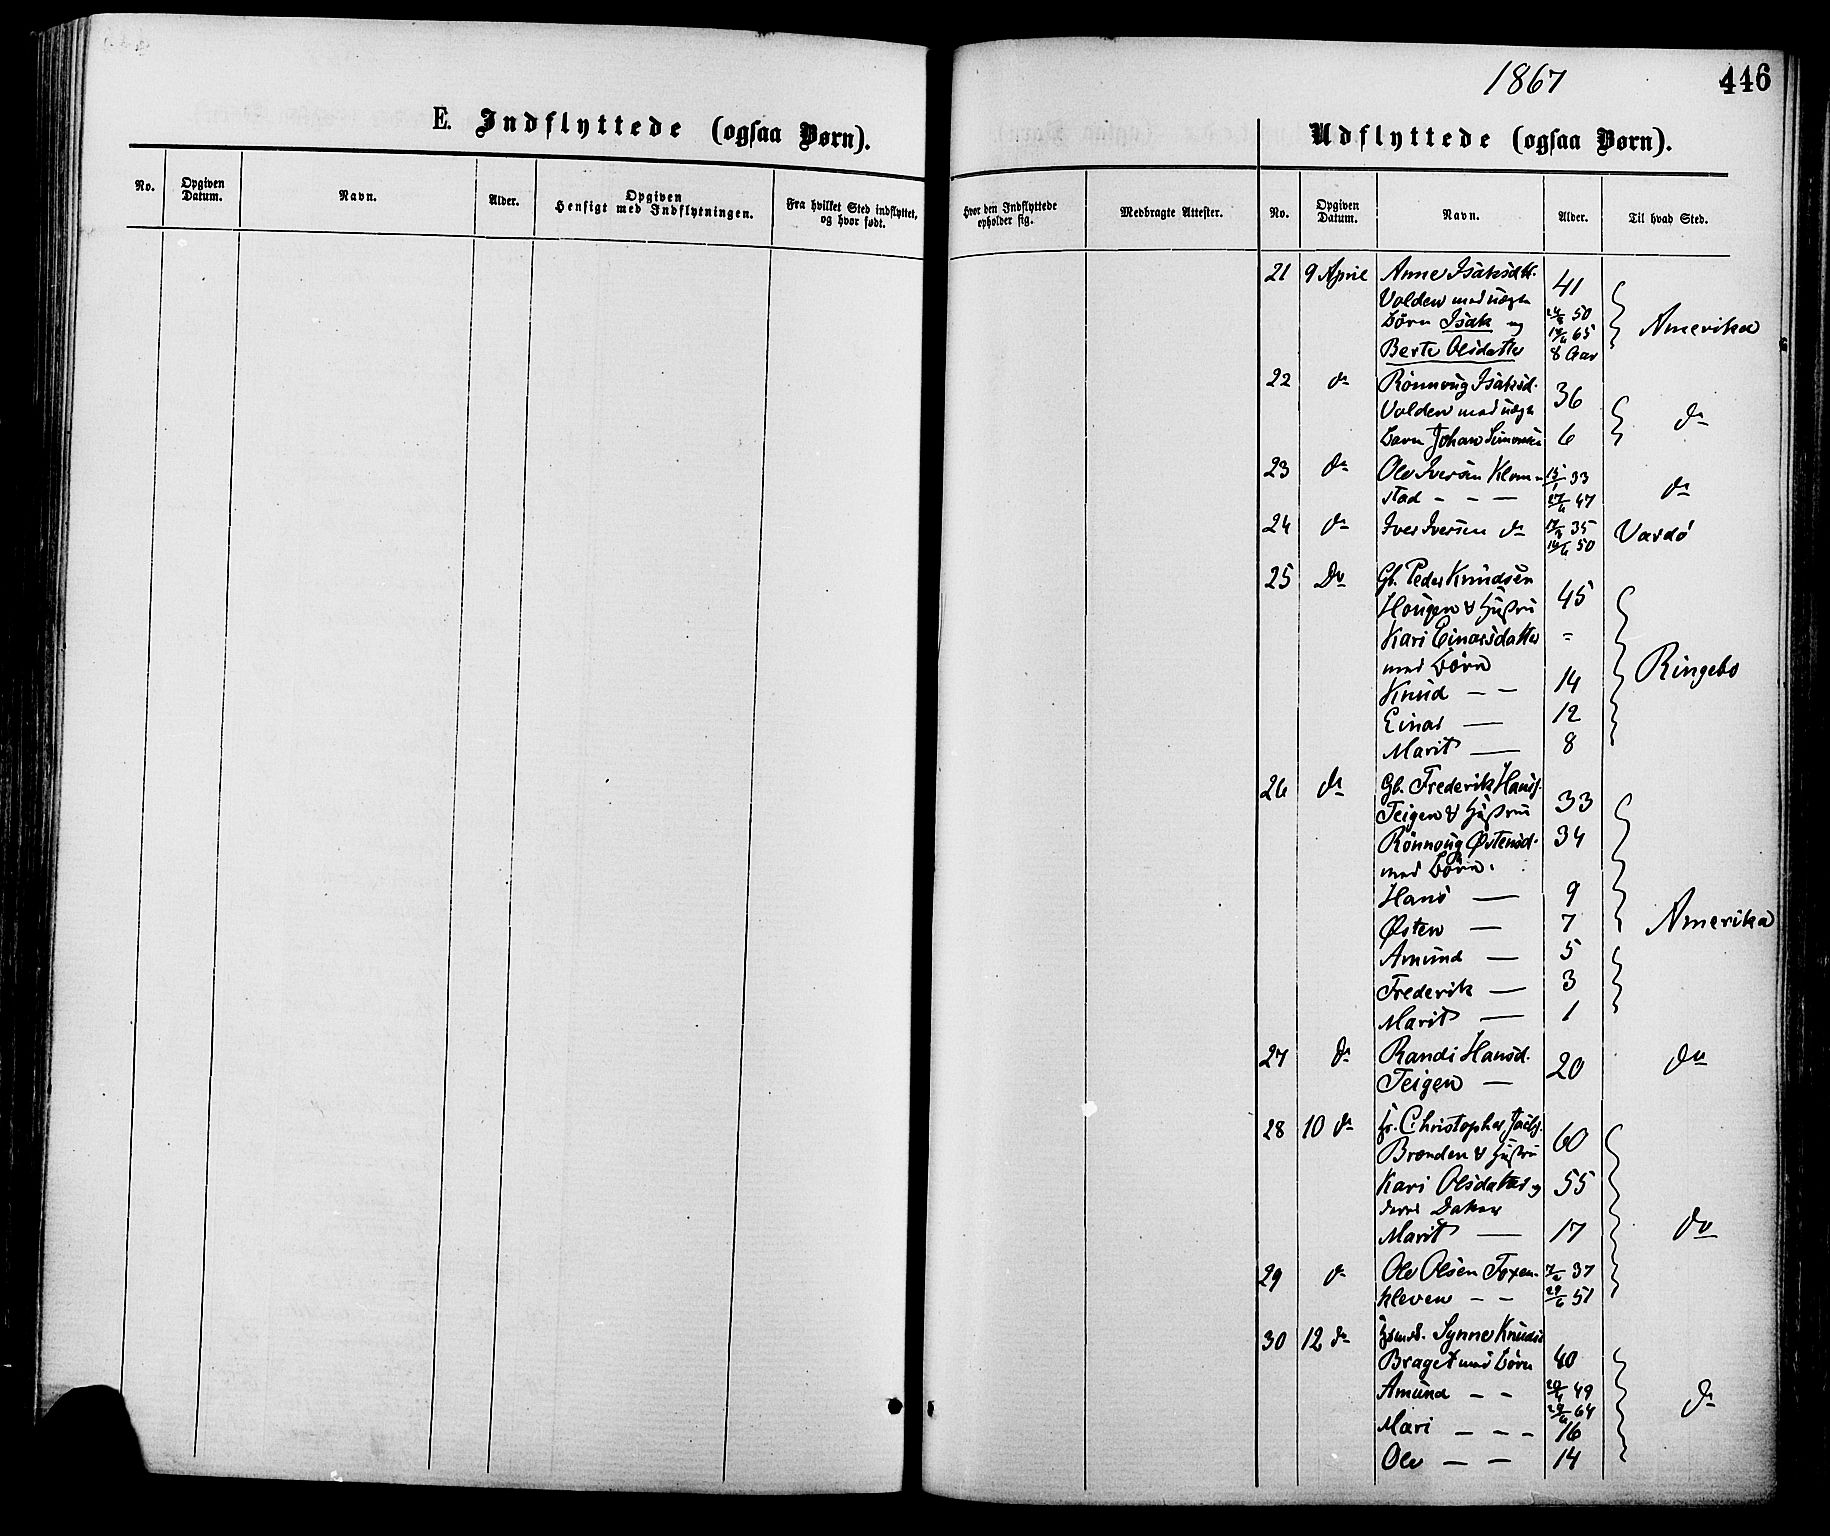 1867
446
E. Indflyttede (ogsaa Børn).
No.
Opgiven
Datum.
Navn.
Alder.
Opgiven
Hensigt med Indflytningen.
Fra hvilket Sted indflyttet,
og hvor født.
Hvor den Indflyttede
opholder sig.
Medbragte Attester.
Udflyttede (ogsaa Børn).
No.
Opgiven
Datum.
Navn.
Alder.
Til hvad Sted.
21 9 April Anne Isaksdtt. 41
Volden med uægte
Børn Isak og 50 65 Amerika
Berte Olsdatter 8 Aar
22 do Rönnoug Isaksd. 36
Volden med uægte do
Barn Johan Simonsen 6
23 do Ole Iversen Klom- 15/1 33
stad - - - 27/6 47 do
24 do Iver Iversen do 35 Vardö
14/6 50
25 Do Gb. Peder Knudsen
Hougen & Hustru 45
Kari Einarsdatter =
med Börn Ringebo
Knud - - 14
Einar - 12
Marit - 8
26 do Gb. Frederik Hans.
Teigen & Hustru 33
Rönnoug Østensd. 34
med Börn.
Hans - 9
Østen - 7 Amerika
Amund - 5
Frederik - 3
Marit - 1
27 do Randi Hansd. do
Teigen - 20
28 10 do Christopher
Brænden & Hustru 60
Kari Olsdatter og 55
deres Datter
Marit - 17 do
29 do Ole Olsen Foxen- 37
kleven - - 29/6 51
30 12 do Synne Knudsd
Braget med Börn 40
Amund - - 49 64
Mari - - - 16 do
Ole - - 14